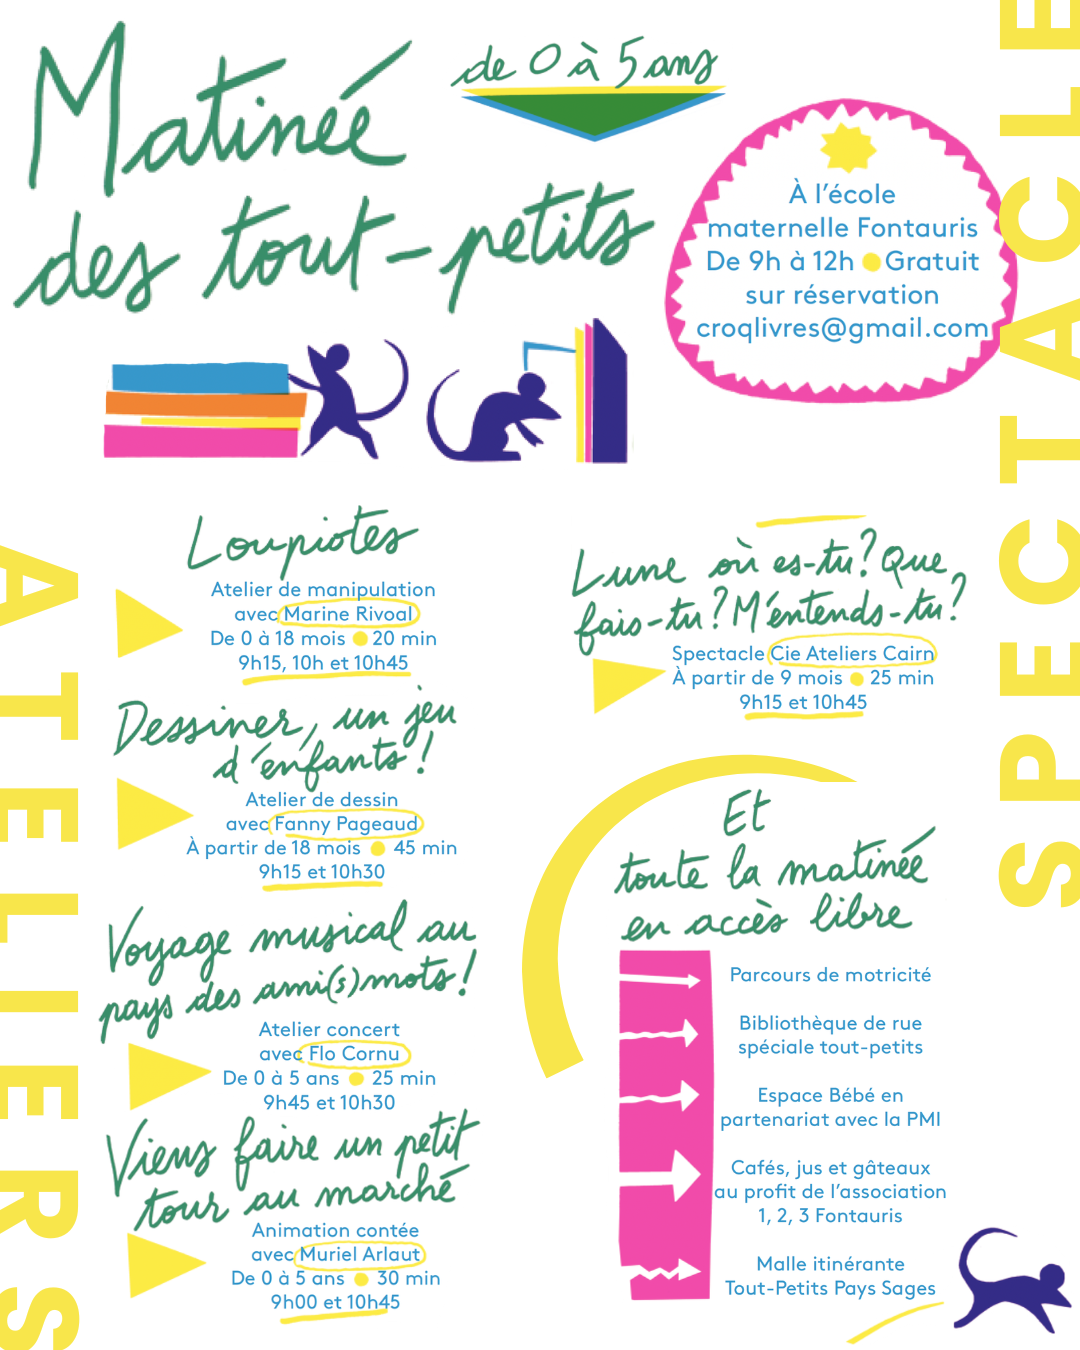 Matinée
des tout-petits
de 0 à 5 ans
À l'école
maternelle Fontauris
De 9h à 12h Gratuit
sur réservation
croqlivres@gmail.com
ATELIERS
Loupiotes
Atelier de manipulation
avec Marine Rivoal
De 0 à 18 mois 20 min
9h15, 10h et 10h45
Dessiner, un jeu
d'enfants !
Atelier de dessin
avec Fanny Pageaud
À partir de 18 mois 45 min
9h15 et 10h30
Voyage musical au
pays des ami(s)mots !
Atelier concert
avec Flo Cornu
De 0 à 5 ans 25 min
9h45 et 10h30
Viens faire un petit
tour au marché
Animation contée
avec Muriel Arlaut
De 0 à 5 ans 30 min
9h00 et 10h45
SPECTACLE
Lune où es-tu? Que
fais-tu? M'entends-tu?
Spectacle Cie Ateliers Cairn
À partir de 9 mois 25 min
9h15 et 10h45
Et
toute la matinée
en accès libre
Parcours de motricité
Bibliothèque de rue
spéciale tout-petits
Espace Bébé en
partenariat avec la PMI
Cafés, jus et gâteaux
au profit de l'association
1, 2, 3 Fontauris
Malle itinérante
Tout-Petits Pays Sages